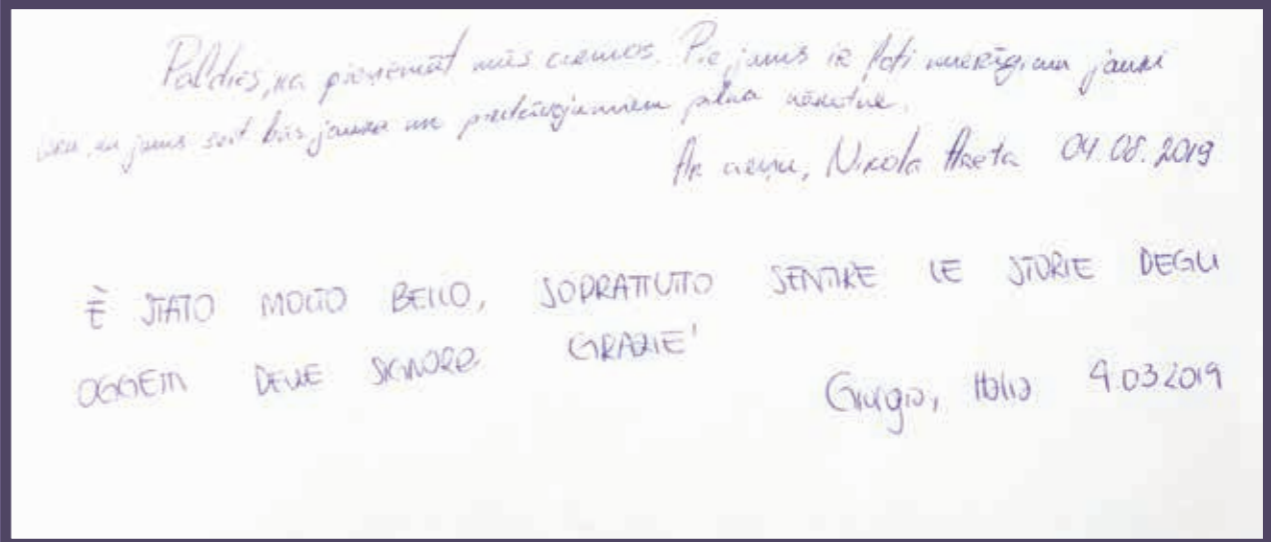 Paldies, ka pieņēmāt mūs ciemos. Pie jums ir ļoti mierīgi un jauki
jums būs jauka un piedzīvojumiem pilna nākotne.
Ar cieņu, Nikola Areta 04.08.2019
È STATO MOLTO BELLO, SOPRATTUTTO SENTIRE LE STORIE DEGLI
OGGETTI DELLE SIGNORE. GRAZIE!
Giorgio, Italia 9.03 2019